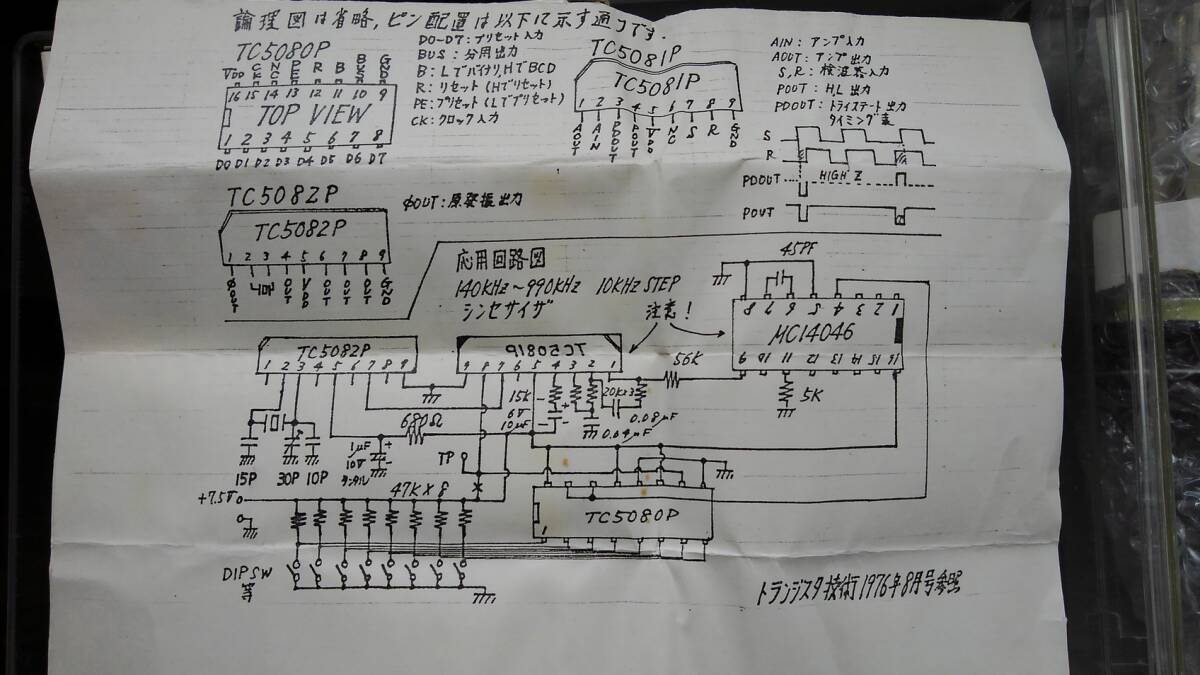 論理図は省略,ピン配置は以下に示す通りです.
TC5080P
VDD CK NC PE R B BUS GND
16 15 14 13 12 11 10 9
TOP VIEW
1 2 3 4 5 6 7 8
D0 D1 D2 D3 D4 D5 D6 D7
D0~D7:プリセット入力
BUS:分周出力
B:Lでバイナリ,HでBCD
R:リセット(Hでリセット)
PE:プリセット(Lでプリセット)
CK:クロック入力
TC5081P
TC5081P
1 2 3 4 5 6 7 8 9
AOUT AIN PDOUT POUT VDD NC S R GND
AIN:アンプ入力
AOUT:アンプ出力
S,R:検波器入力
POUT:H,L出力
PDOUT:トライステート出力
タイミング表
S
R
PDOUT
HIGH Z
POUT
TC5082P
ΦOUT:原発振出力
TC5082P
1 2 3 4 5 6 7 8 9
ΦOUT
OUT VDD OUT OUT OUT GND
応用回路図
140KHz~990KHz 10KHz STEP
シンセサイザ
注意!
45PF
8 7 6 5 4 3 2 1
MC14046
9 10 11 12 13 14 15 16
5K
TC5082P
1 2 3 4 5 6 7 8 9
TC5081P
9 8 7 6 5 4 3 2 1
56K
15K
6V
10μF
20K×3
0.08μF
0.04μF
680Ω
1μF
10V
タンタル
15P
30P
10P
TP
+7.5V
47K×8
TC5080P
1
DIPSW
等
トランジスタ技術1976年8月号参照